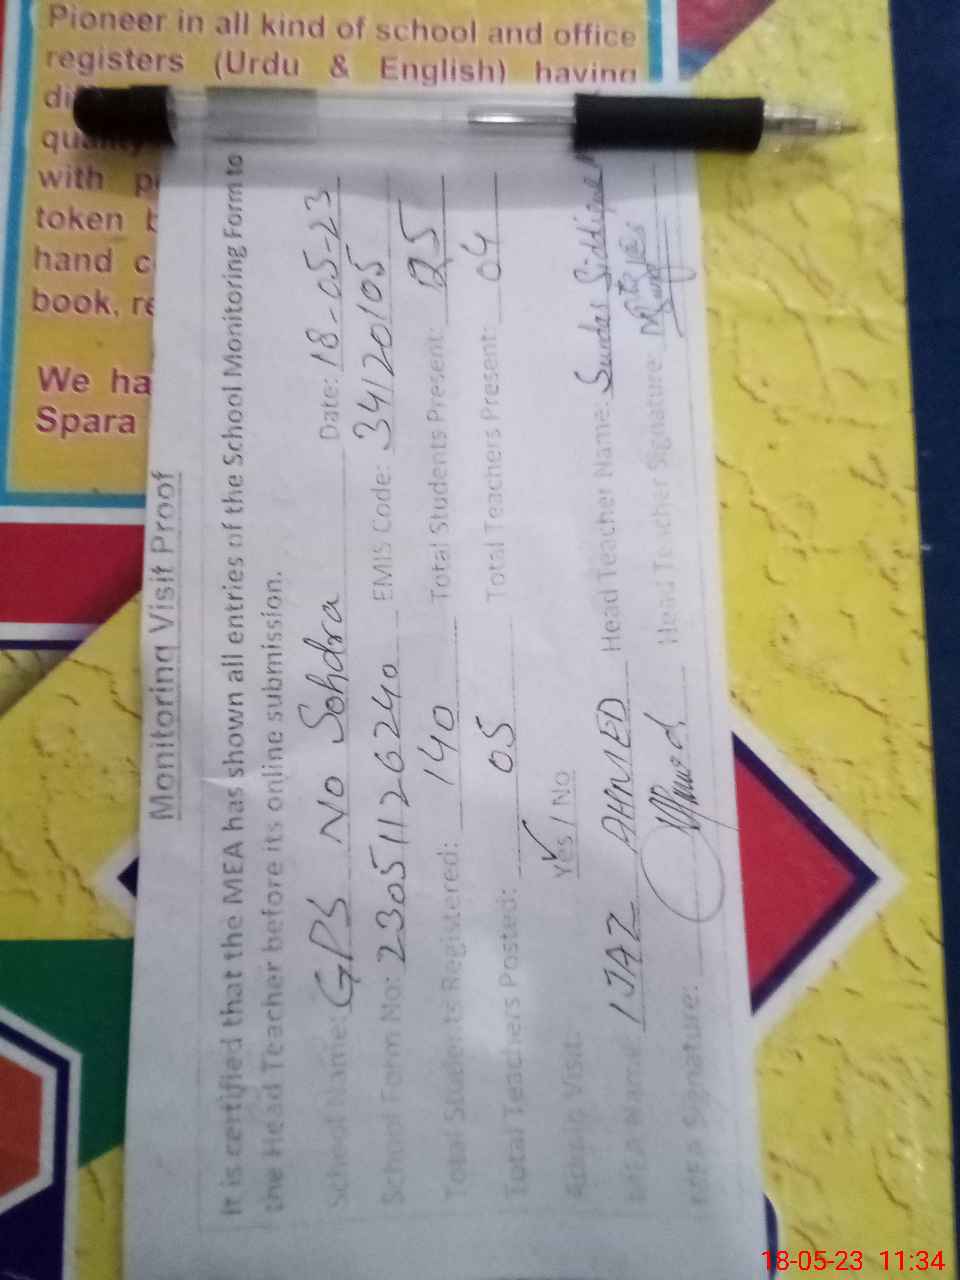 Pioneer in all kind of school and office
registers (Urdu & English) having
with
token
hand
book,
We ha
Spara
Monitoring Visit Proof
It is certified that the MEA has shown all entries of the School Monitoring Form to
the Head Teacher before its online submission.
School Name: GPS No Sohdra Date: 18-05-23
School Form No: 23051126240 EMIS Code: 34120105
Total Students Registered: 140 Total Students Present: 25
Total Teachers Posted: 05 Total Teachers Present: 04
Admin Visit: Yes / No
MEA Name: IJAZ AHMED Head Teacher Name:
MEA Signature: Head Teacher Signature:
18-05-23 11:34